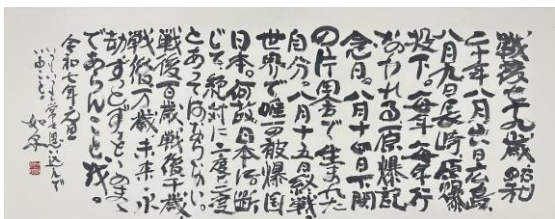 戦後七十九歳 昭和
二十年八月六日広島
八月九日長崎原爆
投下。毎年毎年行
なわれる原爆記
念日。八月十四日下関
の片田舎で生まれた
自分。八月十五日終戦
世界で唯一の被爆国
日本。何故日本に断
じて絶対に二度二度
とあってはならない。
戦後百歳戦後千歳
戦後万歳未来・永
劫ずっとずっと
であらんことを
令和七年元旦
常に思い込んで
いること